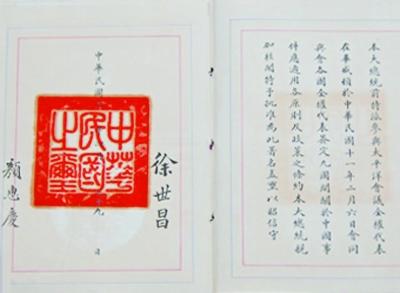 本大總統前特派參與太平洋會議全權代表
在華盛頓於中華民國十一年二月六日會同
與會各國全權代表簽 九國間關於中國事
件應適用各原則及政策之條約本大總統親
加核閱特予批准為此署名蓋璽以昭信守
徐世昌
中華民國 九 日
中華
民國
之璽
顏惠慶